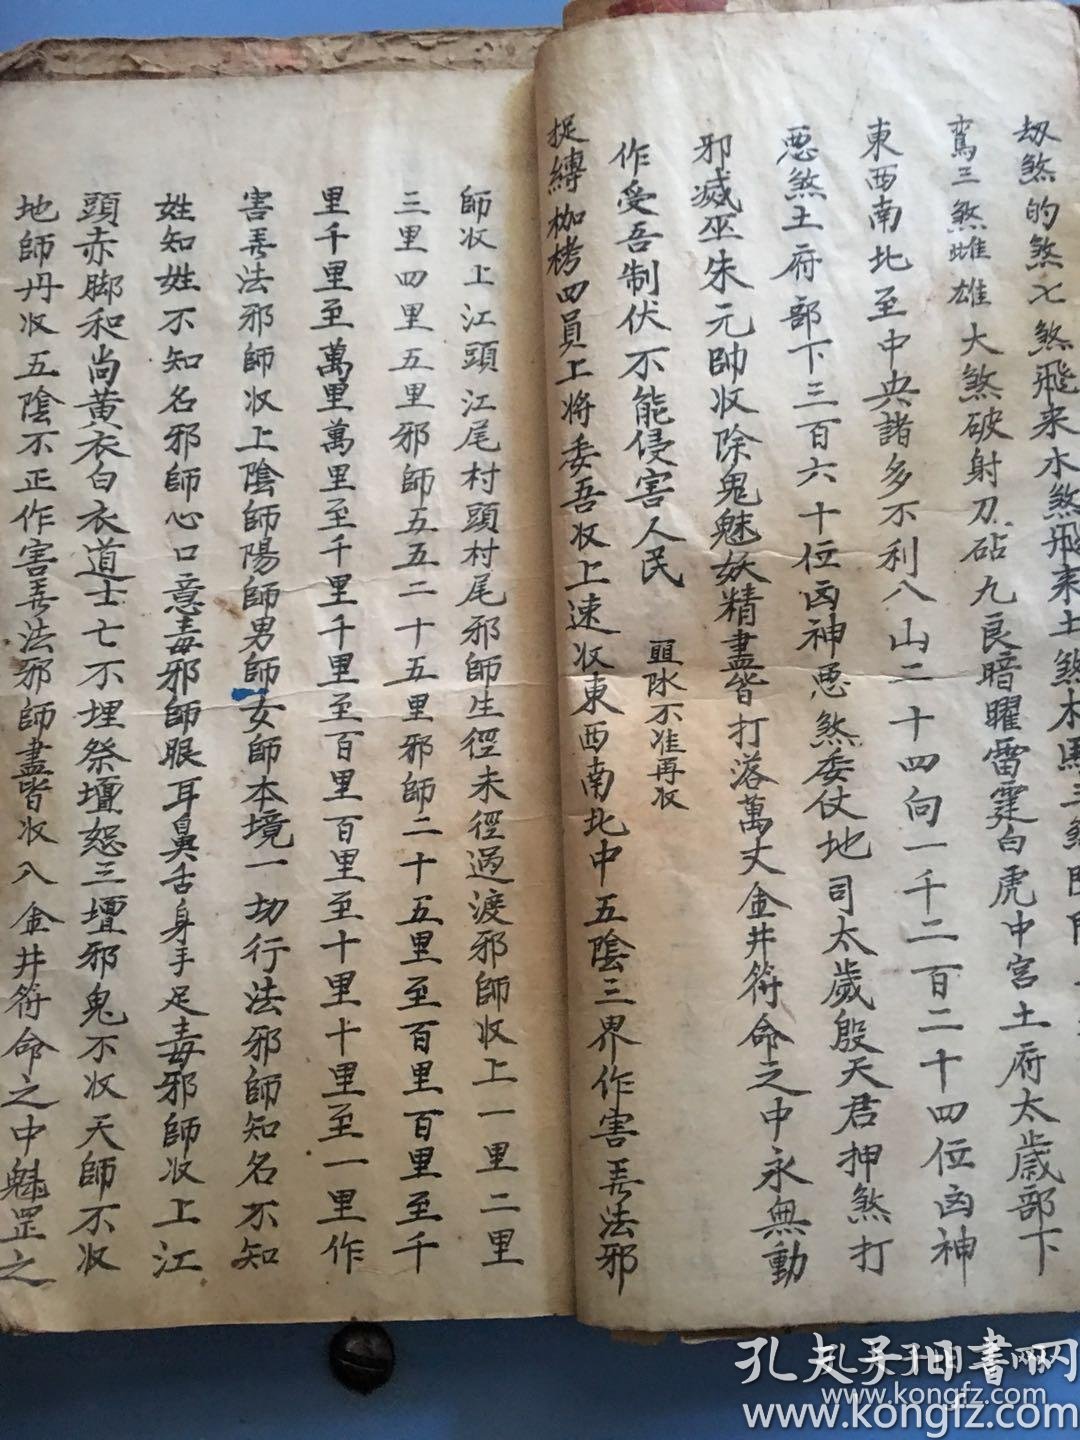 刼煞的煞七煞飛来水煞飛来土煞木馬三煞陰陽
鸞三煞雌雄大煞破射刀砧九良暗曜雷霆白虎中宮土府太歲部下
東西南北至中央諸多不利八山二十四向一千二百二十四位凶神
惡煞土府部下三百六十位凶神惡煞委仗地司太歲殷天君押煞打
邪滅巫朱元帥收除鬼魅妖精盡皆打落萬丈金井符命之中永無動
作受吾制伏不能侵害人民
不准再收
捉縛枷栲四員上將委吾收上速收東西南北中五陰三界作害弄法邪
師收上江頭江尾村頭村尾邪師生徑未徑過渡邪師收上一里二里
三里四里五里邪師五五二十五里邪師二十五里至百里百里至千
里千里至萬里萬里至千里千里至百里百里至十里十里至一里作
害弄法邪師收上陰師陽師男師女師本境一切行法邪師知名不知
姓知姓不知名邪師心口意毒邪師眼耳鼻舌身手足毒邪師收上江
頭赤脚和尚黃衣白衣道士七不埋祭壇怨三壇邪鬼不收天師不收
地師丹收五陰不正作害弄法邪師盡皆收入金井符命之中魁罡之
孔夫子旧書网
www.kongfz.com
www.kongfz.com